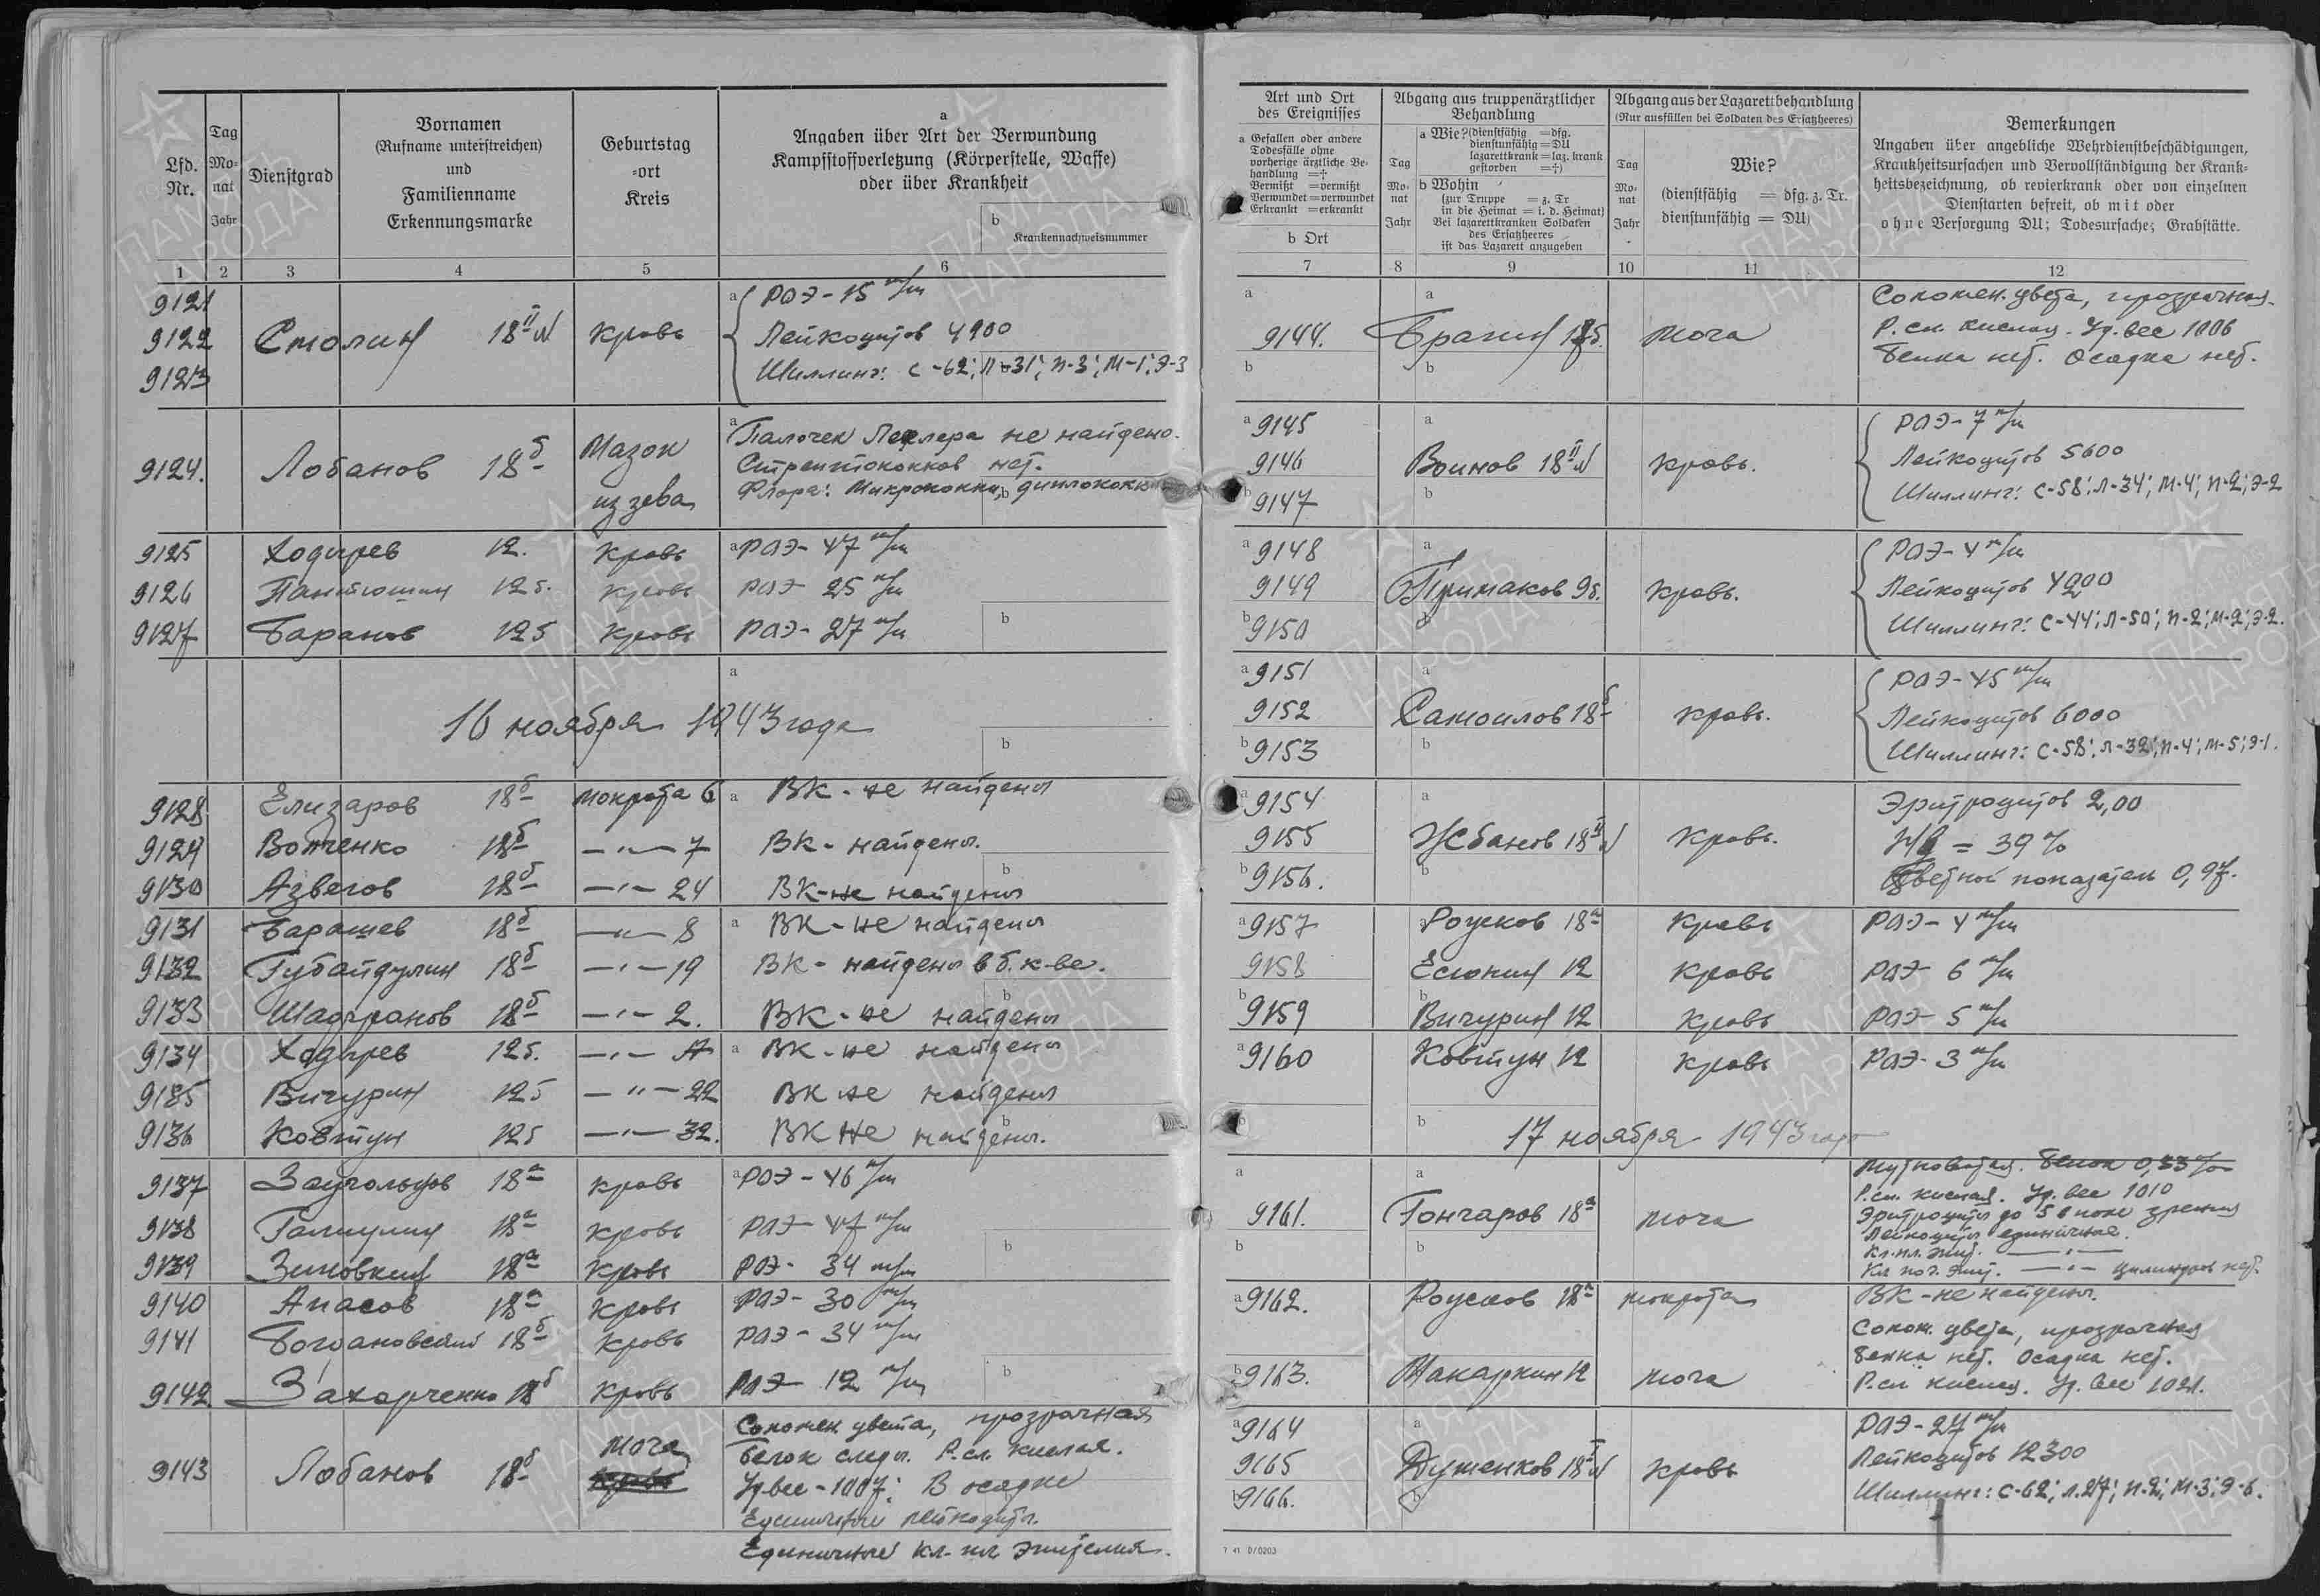 Lfd. Nr.
Tag Mo-nat Jahr
Dienstgrad
Vornamen
(Rufname unterstreichen)
und
Familienname
Erkennungsmarke
Geburtstag
-ort
Kreis
a
Angaben über Art der Verwundung
Kampfstoffverletzung (Körperstelle, Waffe)
oder über Krankheit
b
Krankennachweisnummer
1 2 3 4 5 6
9121 РОЭ - 15 м/m
9122 Смолин 18 II кровь Лейкоцитов 4900
9123 Шиллинг: С-62; Л-31; П-3; М-1; Э-3
9124. Лобанов 18б Мазок из зева
Палочек Лефлера не найдено.
Стрептококков нет.
Флора: Микрококки, диплококки
9125 Ходырев 12. кровь РОЭ - 47 м/m
9126 Пантюшин 12б. кровь РОЭ 25 м/m
9127 Баранов 12б кровь РОЭ - 27 м/m
16 ноября 1943 года
9128 Елизаров 18б мокрота 6 ВК - не найдены
9129 Вотченко 18б —"— 7 ВК - найдены.
9130 Азвегов 18б —"— 24 ВК - не найдены
9131 Барашев 18б —"— 8 ВК - не найдены
9132 Губайдулин 18б —"— 19 ВК - найдены в б. к-ве.
9133 Шадгранов 18б —"— 2. ВК - не найдены
9134 Ходырев 12б. —"— А ВК - не найдены
9135 Вичурин 12б —"— 22 ВК не найдены
9136 Ковтун 12б —"— 32. ВК не найдены.
9137 Заугольцов 18а кровь РОЭ - 46 м/m
9138 Галиулин 18а кровь РОЭ - 47 м/m
9139 Зиновкин 18а кровь РОЭ - 34 м/m
9140 Апасов 18а кровь РОЭ - 30 м/m
9141 Богдановский 18б кровь РОЭ - 34 м/m
9142 Захарченко 18б кровь РОЭ 12 м/m
9143 Лобанов 18б моча
Соломен. цвета, прозрачная
Белок следы. Р. сл. кислая.
Уд. вес - 1007. В осадке
Единичные лейкоциты.
Единичные кл. пл. эпителия.
Art und Ort
des Ereignisses
a Gefallen oder andere
Todesfälle ohne
vorherige ärztliche Be-
handlung =†
Vermißt =vermißt
Verwundet =verwundet
Erkrankt =erkrankt
b Ort
Abgang aus truppenärztlicher
Behandlung
Tag Mo-nat Jahr
a Wie? (dienstfähig =dfg.
dienstunfähig =DU
lazarettkrank =laz. krank
gestorben =†)
b Wohin
(zur Truppe = z. Tr
in die Heimat = i. d. Heimat)
Bei lazarettkranken Soldaten
des Ersatzheeres
ist das Lazarett anzugeben
Abgang aus der Lazarettbehandlung
(Nur ausfüllen bei Soldaten des Ersatzheeres)
Tag Mo-nat Jahr
Wie?
(dienstfähig = dfg. z. Tr.
dienstunfähig = DU)
Bemerkungen
Angaben über angebliche Wehrdienstbeschädigungen,
Krankheitsursachen und Vervollständigung der Krank-
heitsbezeichnung, ob revierkrank oder von einzelnen
Dienstarten befreit, ob mit oder
ohne Versorgung DU; Todesursache; Grabstätte.
7 8 9 10 11 12
9144. Брагин 18б. моча
Соломен. цвета, прозрачная.
Р. сл. кислая. Уд. вес 1006
Белка нет. Осадка нет.
9145 РОЭ - 7 м/m
9146 Воинов 18 II кровь. Лейкоцитов 5600
9147 Шиллинг: С-58; Л-34; М-4; П-2; Э-2
9148 РОЭ - 4 м/m
9149 Примаков 9б. кровь. Лейкоцитов 4200
9150 Шиллинг: С-44; Л-50; П-2; М-2; Э-2.
9151 РОЭ - 45 м/m
9152 Самоилов 18б кровь. Лейкоцитов 6000
9153 Шиллинг: С-58; Л-32; П-4; М-5; Э-1.
9154 Эритроцитов 2,00
9155 Жбанов 18 II кровь. Нв = 39 %
9156. Цветной показатель 0,97.
9157 Роусков 18а кровь РОЭ - 4 м/m
9158 Есюнин 12 кровь РОЭ 6 м/m
9159 Вичурин 12 кровь РОЭ 5 м/m
9160 Ковтун 12 кровь РОЭ - 3 м/m
17 ноября 1943 года
9161. Гончаров 18а моча
Мутноватая. Белок 0,33‰
Р. сл. кислая. Уд. вес 1010
Эритроциты до 5 в поле зрения
Лейкоциты единичные.
Кл. пл. эпит. —"—
Кл. поч. эпит. —"— цилиндров нет.
9162. Роусков 18а мокрота ВК - не найдены.
9163. Макаркин 12 моча
Солом. цвета, прозрачная
Белка нет. Осадка нет.
Р. сл кислая. Уд. вес 1021.
9164 РОЭ - 27 м/m
9165 Душенков 18 I кровь Лейкоцитов 12300
9166. Шиллинг: С-62; Л.27; П-2; М-3; Э-6.
7 41 D/0203
ПАМЯТЬ НАРОДА